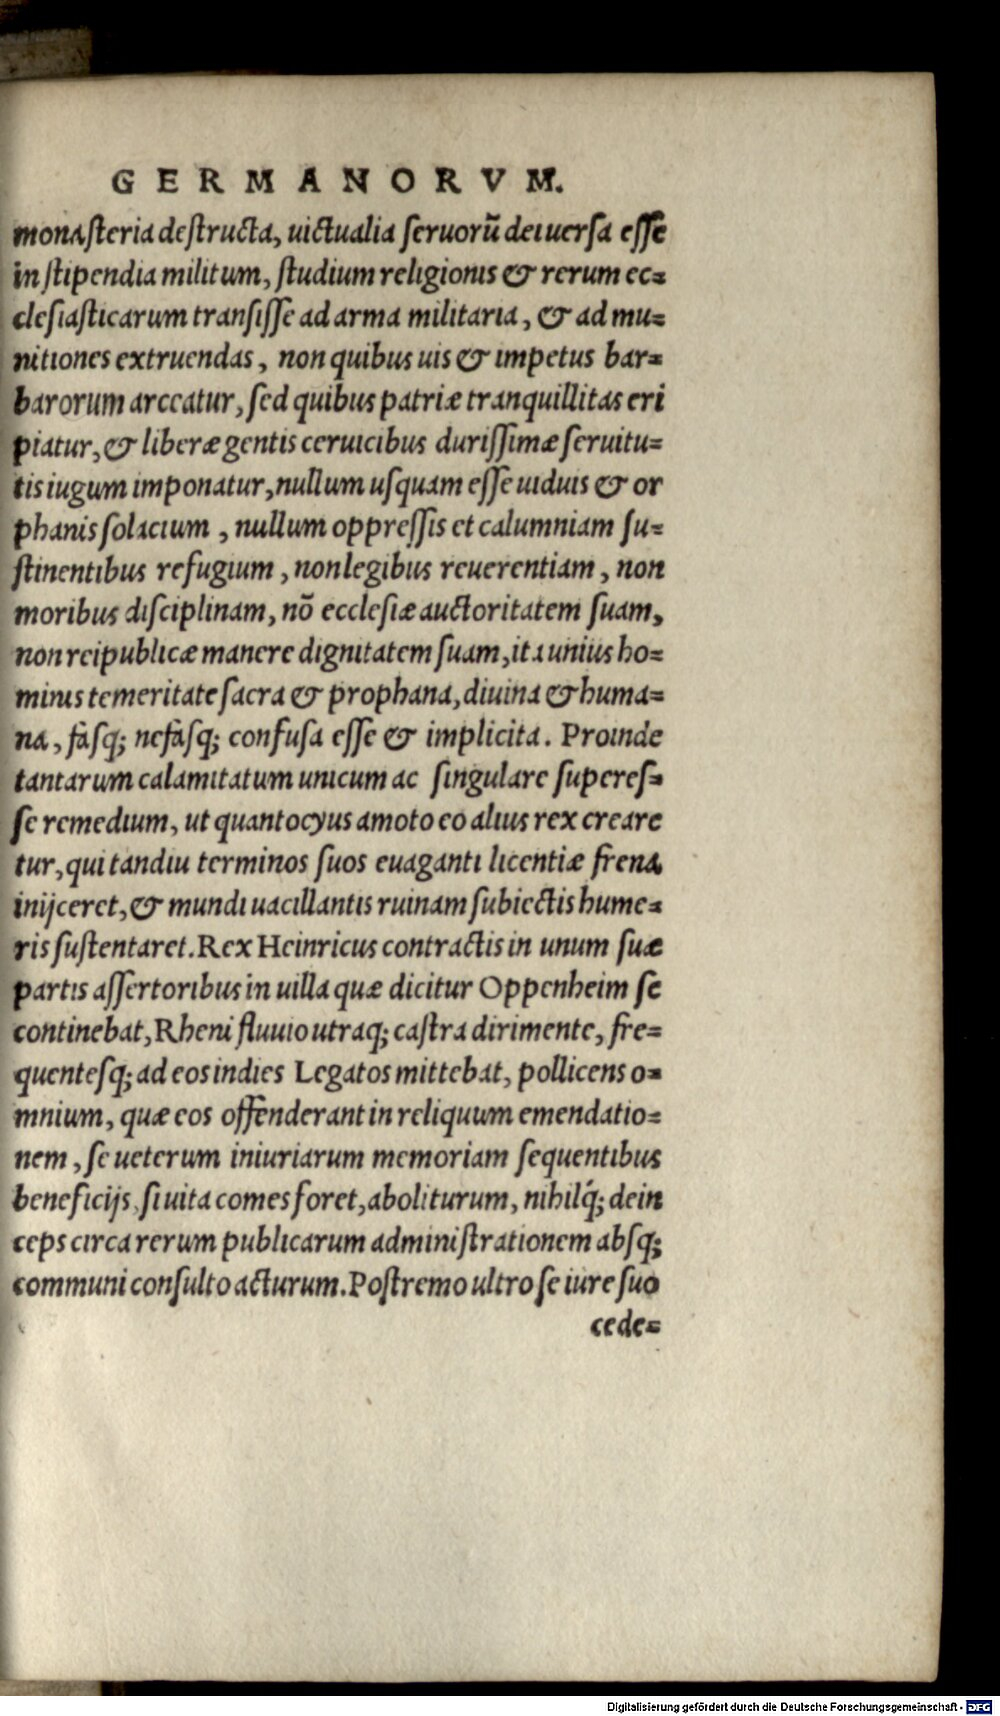 GERMANORVM.
monasteria destructa, uictualia seruorū dei uersa esse
in stipendia militum, studium religionis & rerum ec=
clesiasticarum transisse ad arma militaria, & ad mu=
nitiones extruendas, non quibus uis & impetus bar=
barorum arceatur, sed quibus patriæ tranquillitas eri
piatur, & liberæ gentis ceruicibus durissimæ seruitu=
tis iugum imponatur, nullum usquam esse uiduis & or
phanis solacium, nullum oppressis et calumniam su=
stinentibus refugium, non legibus reuerentiam, non
moribus disciplinam, nō ecclesiæ auctoritatem suam,
non reipublicæ manere dignitatem suam, ita unius ho=
minis temeritate sacra & prophana, diuina & huma=
na, fasq; nefasq; confusa esse & implicita. Proinde
tantarum calamitatum unicum ac singulare superes=
se remedium, ut quantocyus amoto eo alius rex creare
tur, qui tandiu terminos suos euaganti licentiæ frena
inijceret, & mundi uacillantis ruinam subiectis hume=
ris sustentaret. Rex Heinricus contractis in unum suæ
partis assertoribus in uilla quæ dicitur Oppenheim se
continebat, Rheni fluuio utraq; castra dirimente, fre=
quentesq; ad eos indies Legatos mittebat, pollicens o=
mnium, quæ eos offenderant in reliquum emendatio=
nem, se ueterum iniuriarum memoriam sequentibus
beneficijs, si uita comes foret, aboliturum, nihilq́; dein
ceps circa rerum publicarum administrationem absq;
communi consulto acturum. Postremo ultro se iure suo
cede=
Digitalisierung gefördert durch die Deutsche Forschungsgemeinschaft - DFG